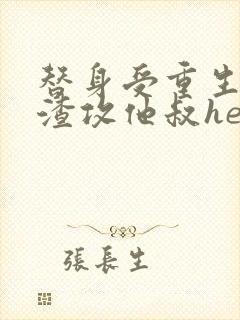 替身受重生
渣攻他叔he
張長生